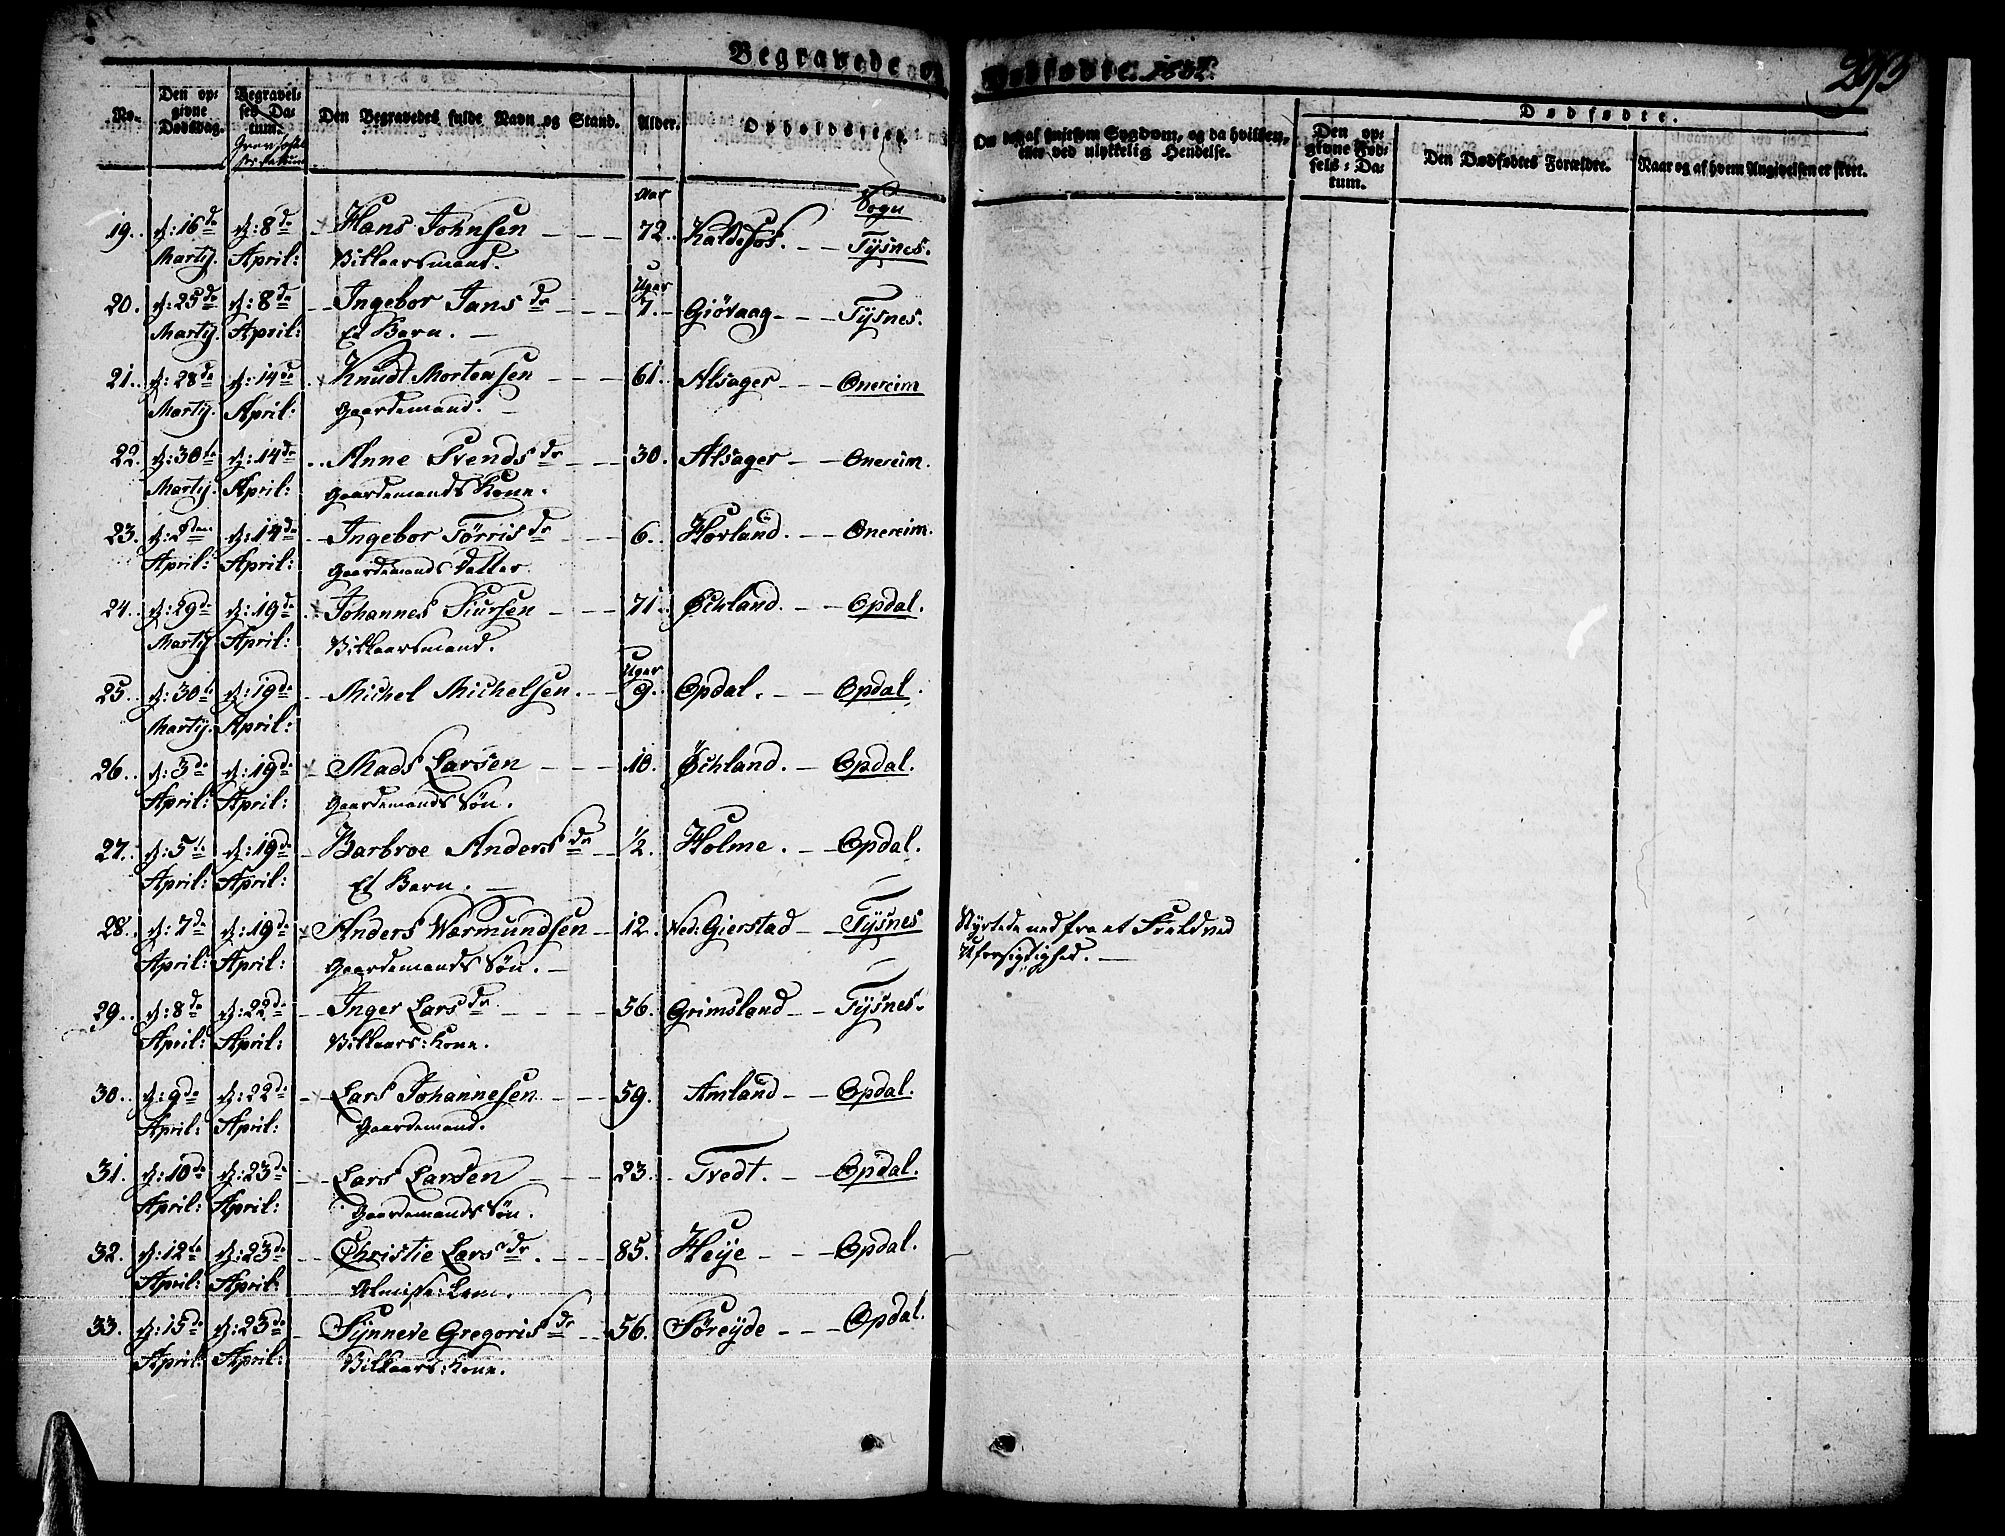 Begravede og
Dødfødte. 1832.
293
No.
Den opgivne Dødsdag.
Begravelses Datum.
Den Begravedes fulde Navn og Stand.
Alder.
Opholdssted.
Om død af smitsom Sygdom, og da hvilken, eller ved ulykkelig Hendelse.
Dødfødte.
Den opgivne Fødsels-Datum.
Den Dødfødtes Forældre.
Naar og af hvem Angivelsen er skeet.
Aar Sogn
19. d: 16de d: 8de Hans Johnsen 72. Kaldefos. Tysnes.
Martij. April: Vilkaarsmand.
Uger
20. d: 25de d: 8de Ingebor Jans dr 7. Giøvaag Tysnes.
Martij. April: Et Barn.
21. d: 28de d: 14de Knudt Mortensen 61. Alsager Onereim
Martij. April: Gaardemand.
22. d: 30te d: 14de Anne Svends dr 30. Alsager Onereim.
Martij. April: Gaardemands Kone.
23. d: 2den d: 14de Ingebor Tørris dr 6. Hovland. Onereim.
April: April: Gaardemands Datter.
24. d: 29de d: 19de Johannes Siursen 71. Øchland. Opdal.
Martij April: Vilkaarsmand.
Uger
25. d: 30te d: 19de Michel Michelsen. 9. Opdal. Opdal.
Martij. April:
26. d: 3de d: 19de Mads Larsen 10. Øchland. Opdal.
April: April: Gaardemands Søn.
27. d: 5te d: 19de Barbroe Anders dr 1/2. Holme. Opdal.
April: April: Et Barn.
28. d: 7de d: 19de Anders Wærmundsen 12. Ned: Gierstad Tysnes Styrtede ned fra et Field ved
April: April: Gaardemands Søn. Uforsigtighed.
29. d: 8de d: 22de Inger Lars dr 56. Grimsland Tysnes.
April: April: Vilkaars: Kone.
30. d: 9de d: 22de Lars Johannesen 59. Amland Opdal.
April: April: Gaardemand.
31. d: 10de d: 23de Lars Larsen 23. Tvedt. Opdal.
April: April: Gaardemands Søn.
32. d: 12te d: 23de Christie Lars dr. 85. Heye Opdal.
April: April: Almisse: Lem.
33. d: 15de d: 23de Synneve Gregoris dr 56. Søreyde Opdal.
April: April: Vilkaars: Kone.